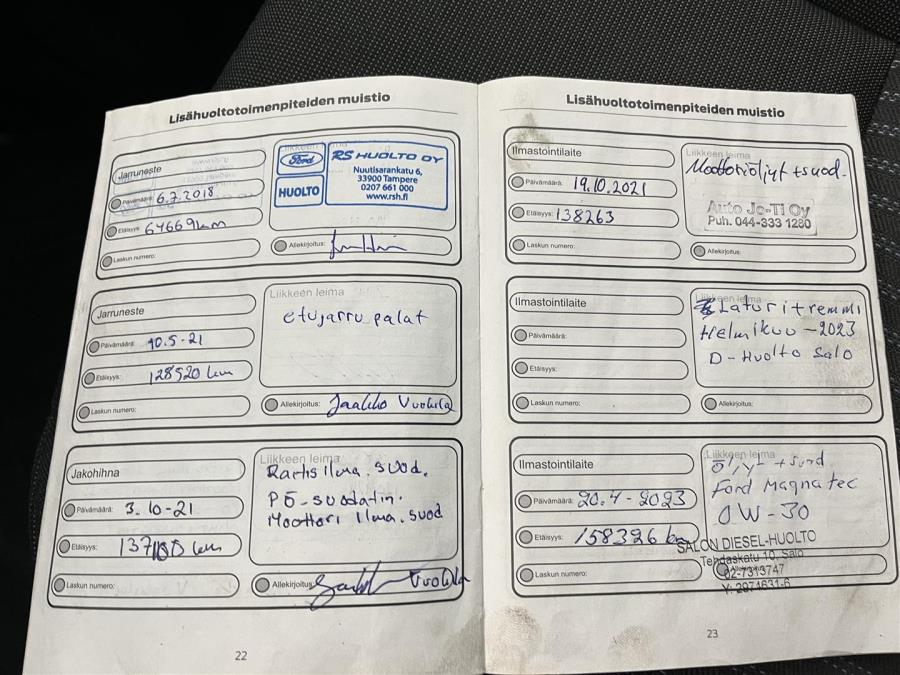 Lisähuoltotoimenpiteiden muistio
Jarruneste
Päivämäärä: 6.7.2018
Etäisyys: 64669 km
Laskun numero:
Liikkeen leima
Ford
HUOLTO
RS HUOLTO OY
Nuutisarankatu 6,
33900 Tampere
0207 661 000
www.rsh.fi
Allekirjoitus:
Jarruneste
Päivämäärä: 10.5-21
Etäisyys: 128520 km
Laskun numero:
Liikkeen leima
etujarru palat
Allekirjoitus: Jaakko Vuohila
Jakohihna
Päivämäärä: 3.10-21
Etäisyys: km
Laskun numero:
Liikkeen leima
Raitis ilma. suod.
PÖ-suodatin.
Moottori ilma.suod
Allekirjoitus:
22
Lisähuoltotoimenpiteiden muistio
Ilmastointilaite
Päivämäärä: 19.10.2021
Etäisyys: 138263
Laskun numero:
Liikkeen leima
Moottoriöljyt + suod.
Auto Jo-Ti Oy
Puh. 044-333 1280
Allekirjoitus:
Ilmastointilaite
Päivämäärä:
Etäisyys:
Laskun numero:
Liikkeen leima
Laturitremmi
Helmikuu-2023
D-Huolto Salo
Allekirjoitus:
Ilmastointilaite
Päivämäärä: 20.4-2023
Etäisyys: 158326 km
Laskun numero:
Liikkeen leima
Öljy + suod
Ford Magnatec
0W-30
SALON DIESEL-HUOLTO
Tehdaskatu 10, Salo
02-7313747
Y: 2974631-6
Allekirjoitus:
23